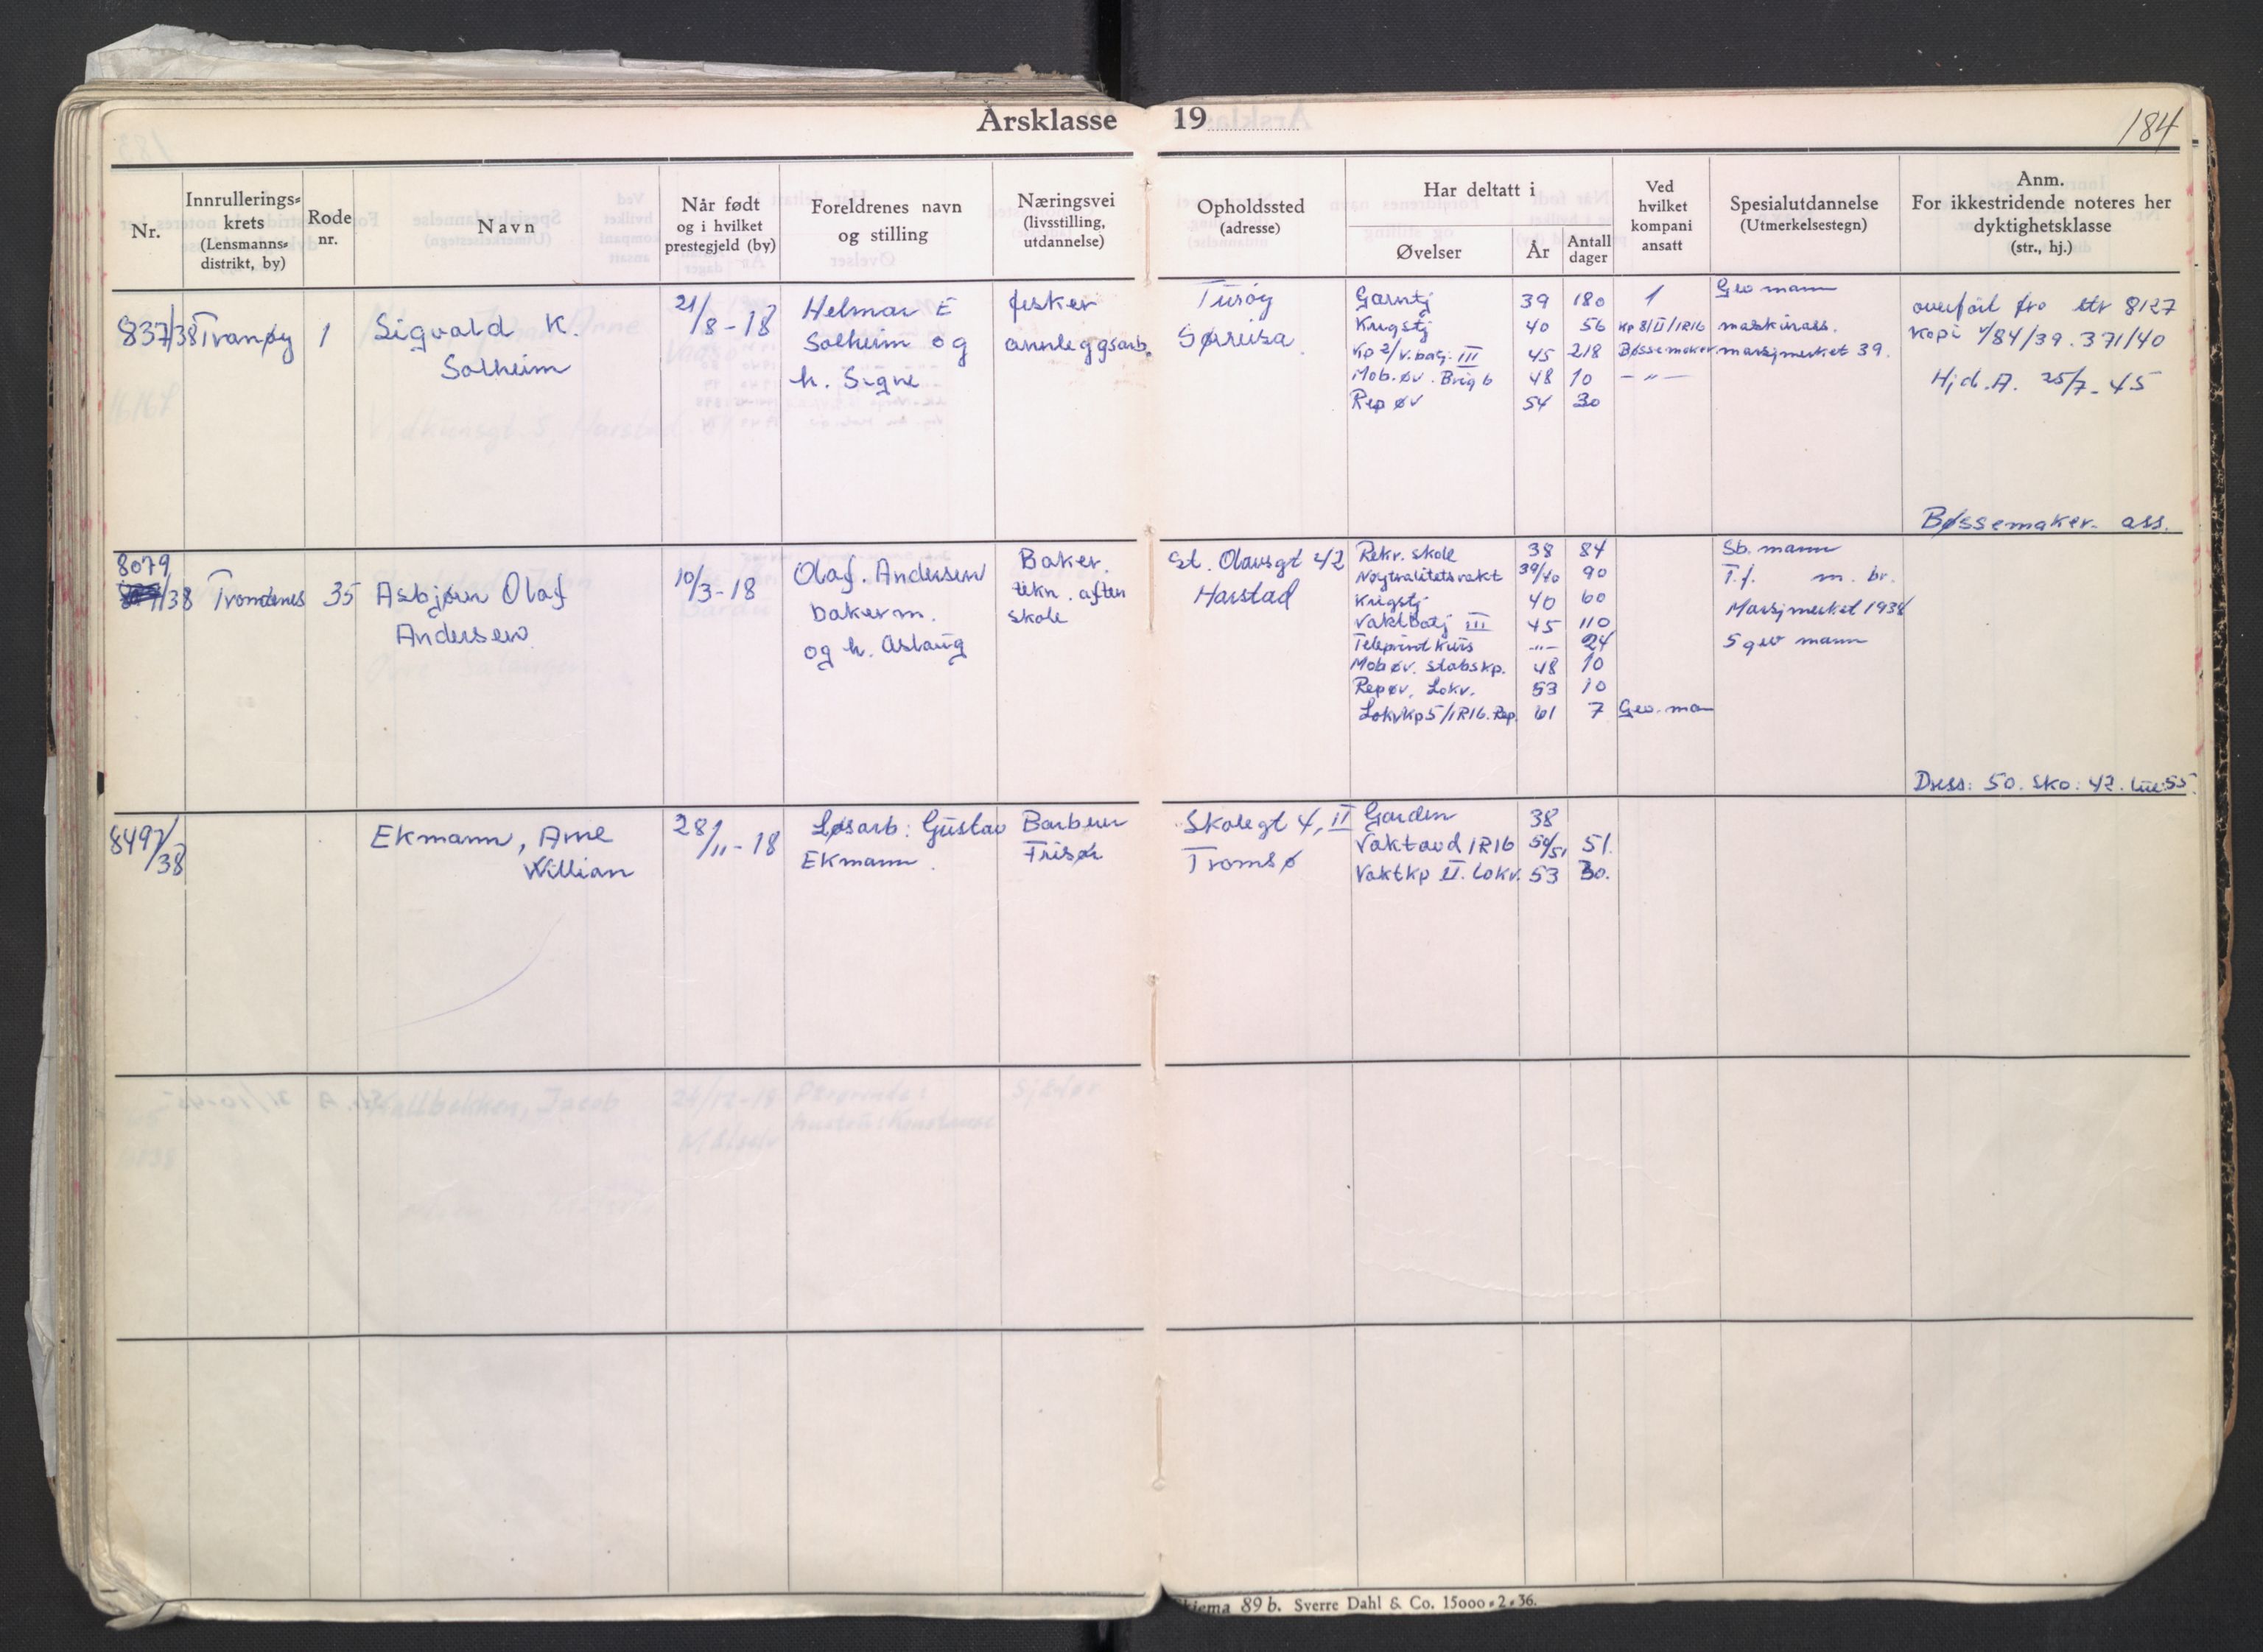 Årsklasse 19
184
Nr.
Innrullerings=
krets
(Lensmanns=
distrikt, by)
Rode
nr.
Navn
Når født
og i hvilket
prestegjeld (by)
Foreldrenes navn
og stilling
Næringsvei
(livsstilling,
utdannelse)
Opholdssted
(adresse)
Har deltatt i
Øvelser
År
Antall
dager
Ved
hvilket
kompani
ansatt
Spesialutdannelse
(Utmerkelsestegn)
Anm.
For ikkestridende noteres her
dyktighetsklasse
(str., hj.)
837/38 Tranøy 1
Sigvald K.
Solheim
21/8-18
Helmar E
Solheim og
h. Signe
fisker
annleggsarb.
Sørreisa
Garntj 39 180 1
Krigstj 40 56 Kp 8/II/IR16
Kp 2/v.batj. III 45 218 Bøssemaker
Mob. øv. Brig 6 48 10 - " -
Rep øv 54 30
Gev mann
maskinass.
marsjmerket 39.
8127
kopi 4/84/39. 371/40
Hjd. A. 25/7-45
Bøssemaker ass.
8079
/38 Trondenes 35
Asbjørn Olaf
Andersen
10/3-18
Olaf. Andersen
bakerm.
og h. Aslaug
Baker.
tekn. aften
skole
St. Olavsgt 42
Harstad
Rekr. skole 38 84
Nøytralitetsvakt 39/40 90
Krigstj 40 60
Vaktbatj III 45 110
Teleprint kurs -"- 24
Mob øv. stabskp. 48 10
Rep øv. Lokv. 53 10
Lokvkp 5/IR16. Rep. 61 7 Gev. man
Sb. mann
T.f. m. br.
Marsjmerket 1938
S gev mann
Dress: 50. Sko: 42. Lue: 55.
8497/38
Ekmann, Arne
Willian
28/11-18
Løsarb: Gustav
Ekmann.
Barberer
Frisør
Skolegt 4, II
Tromsø
Garden 38
Vaktavd IR16 50/51 51.
Vaktkp II. Lokv. 53 30.
89 b. Sverre Dahl & Co. 15000=2=36.